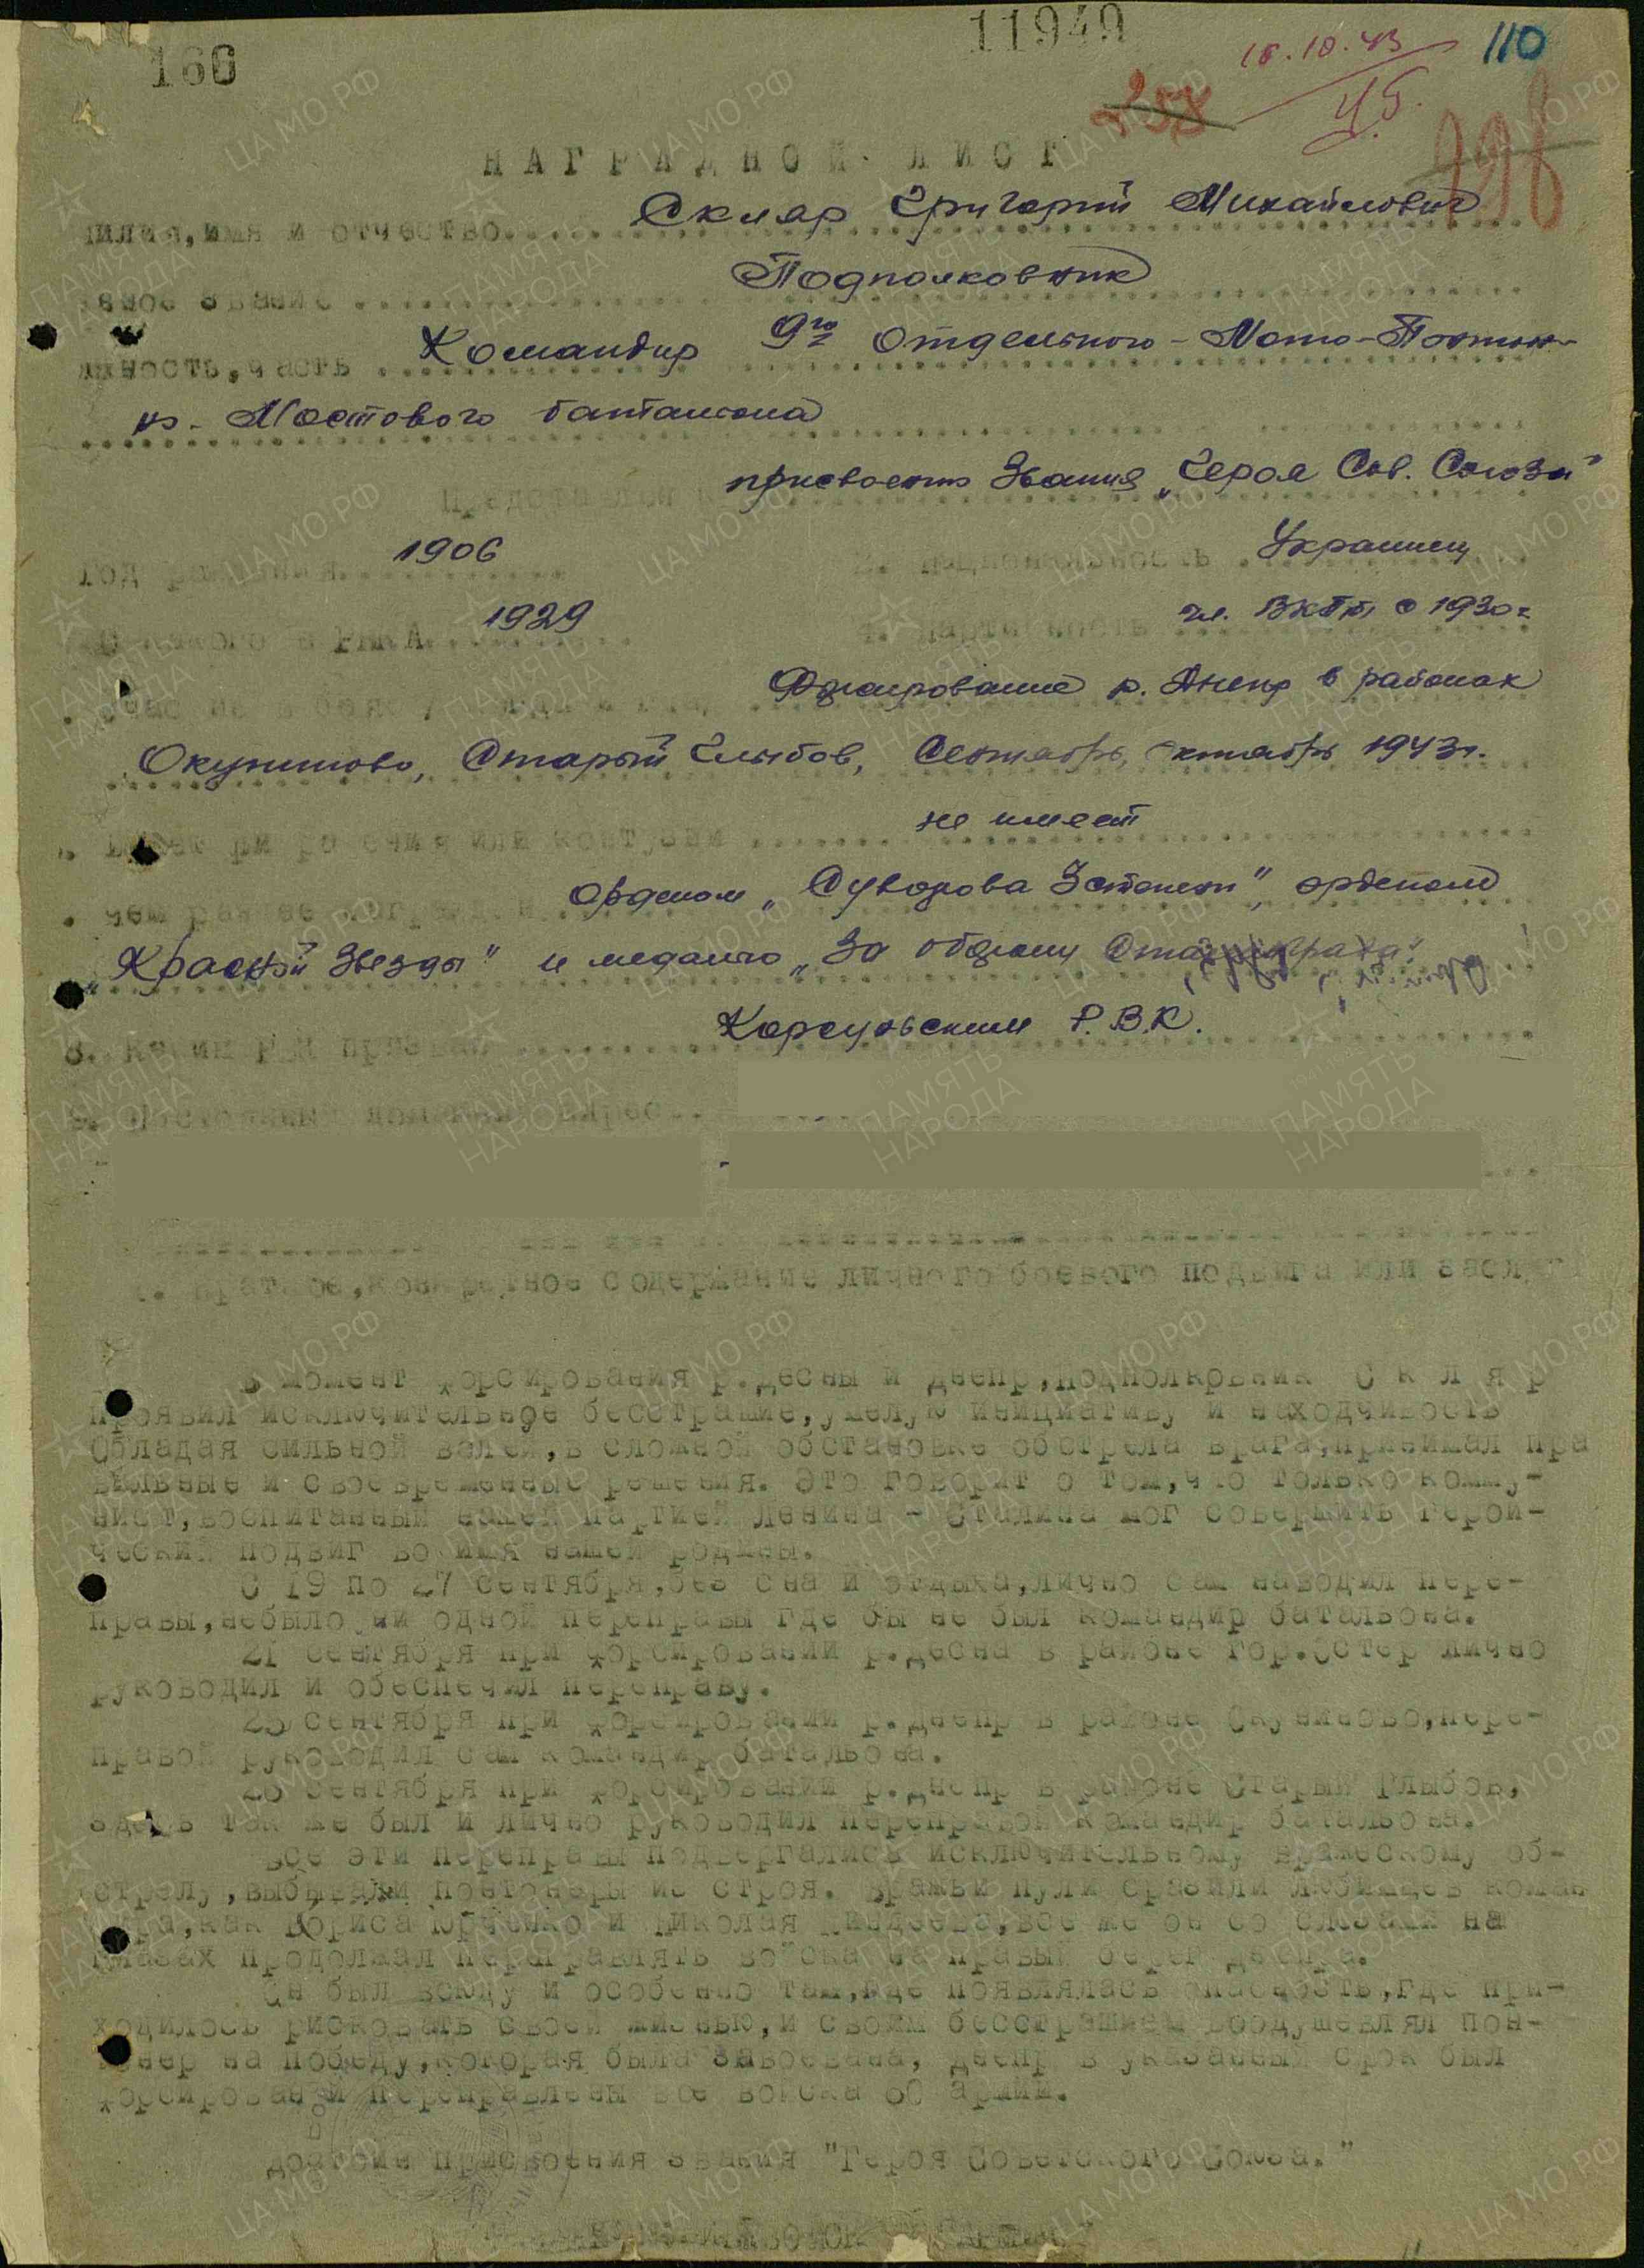 166
11949
18.10.43
110
258
45.
НАГРАДНОЙ ЛИСТ
милия, имя и отчество Скляр Григорий Михайлович
нное звание Подполковник
жность, часть Командир 9го Отдельного-Мото-Понтон-
но-Мостового батальона
Представлен присвоению Звания „Героя Сов. Союза"
Год рождения 1906
2. национальность Украинец
С какого в РККА 1929
4. партийность чл. ВКПб с 1930г
Форсирование р. Днепр в районах
Окуниново, Старый Глыбов, Сентябрь, октябрь 1943г.
имеет ли ранения или контузии не имеет
чем ранее награжден Орденом „Суворова 3 степени", орденом
„Красной Звезды" и медалью „За оборону Сталинграда".
8. Каким РВК призван Корсуньским Р.В.К.
9. Постоянный домашний адрес
Краткое, конкретное содержание личного боевого подвига или заслуг
В момент форсирования р.Десны и Днепр, подполковник С к л я р
проявил исключительное бесстрашие, умелую инициативу и находчивость
Обладая сильной волей, в сложной обстановке обстрела врага, принимал пра
вильные и своевременные решения. Это говорит о том, что только комму-
нист, воспитанный нашей партией Ленина - Сталина мог совершить герои-
ческий подвиг во имя нашей родины.
С 19 по 27 сентября, без сна и отдыха, лично сам наводил пере-
правы, небыло ни одной переправы где бы не был командир батальона.
21 сентября при форсировании р.Десна в районе гор.Остер лично
руководил и обеспечил переправу.
23 сентября при форсировании р.Днепр в районе Окуниново, пере-
правой руководил сам командир батальона.
26 сентября при форсировании р.Днепр в районе Старый Глыбов,
здесь так же был и лично руководил переправой командир батальона.
Все эти переправы подвергались исключительному вражескому об-
стрелу, выбывали понтонеры из строя. Вражьи пули сразили любимцев коман
дира, как Бориса Юрченко и Николая все же он со слезами на
глазах продолжал переправлять войска на правый берег Днепра.
Он был всюду и особенно там, где появлялась опасность, где при-
ходилось рисковать своей жизнью, и своим бесстрашием воодушевлял пон-
тонер на победу, которая была завоевана, Днепр в указанный срок был
форсирован и переправлены все войска 60 армии.
Достоин присвоения звания "Героя Советского Союза."